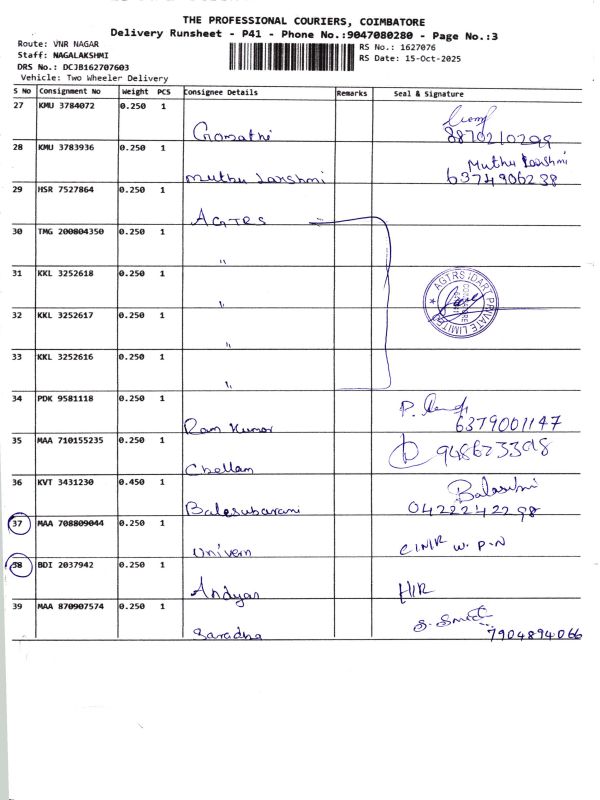 THE PROFESSIONAL COURIERS, COIMBATORE
Delivery Runsheet - P41 - Phone No.:9047080280 - Page No.:3
Route: VNR NAGAR
Staff: NAGALAKSHMI
DRS No.: DCJB162707603
Vehicle: Two Wheeler Delivery
RS No.: 1627076
RS Date: 15-Oct-2025
S No Consignment No Weight PCS Consignee Details Remarks Seal & Signature
27 KMU 3784072 0.250 1
Gomathi 8870210299
28 KMU 3783936 0.250 1 Muthu Lakshmi
Muthu Lakshmi 6374906238
29 HSR 7527864 0.250 1
AGTRS "
30 TMG 200804350 0.250 1
"
31 KKL 3252618 0.250 1
"
AGTRS IDART PRIVATE LIMITED
COIMBATORE
32 KKL 3252617 0.250 1
"
33 KKL 3252616 0.250 1
"
34 PDK 9581118 0.250 1 P.
Ram Kumar 6379001147
35 MAA 710155235 0.250 1
Chellam
36 KVT 3431230 0.450 1
Balesubarani 0422242298
37 MAA 708809044 0.250 1
Univern W.P.N
38 BDI 2037942 0.250 1
Andyar H/R
39 MAA 870907574 0.250 1 S.
Saradha 7904894066